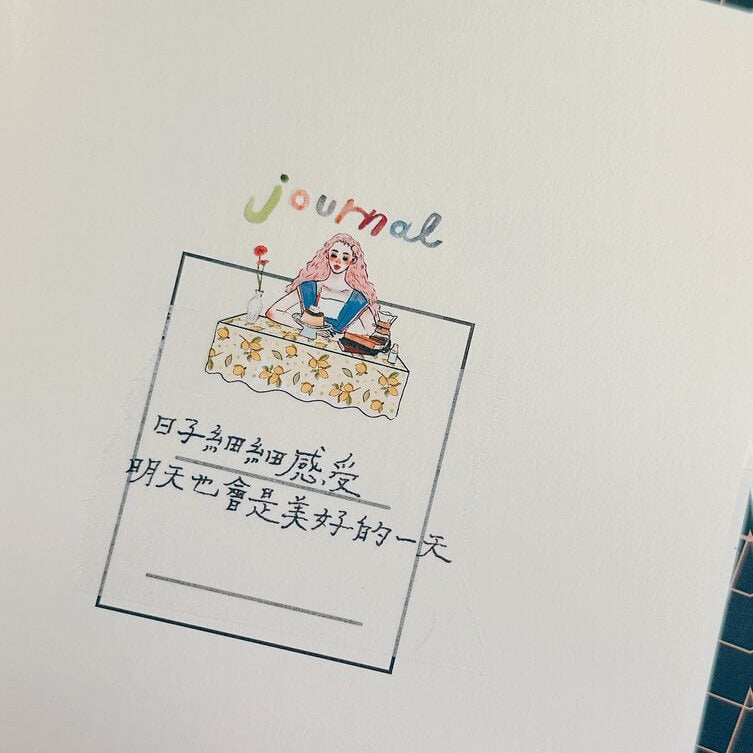 journal
日子細細感受
明天也會是美好的一天